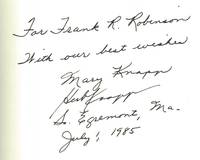 For Frank R. Robinson
With our best wishes
Mary Knapp
Herb Knapp
So. Egremont, Ma.
July 1, 1985